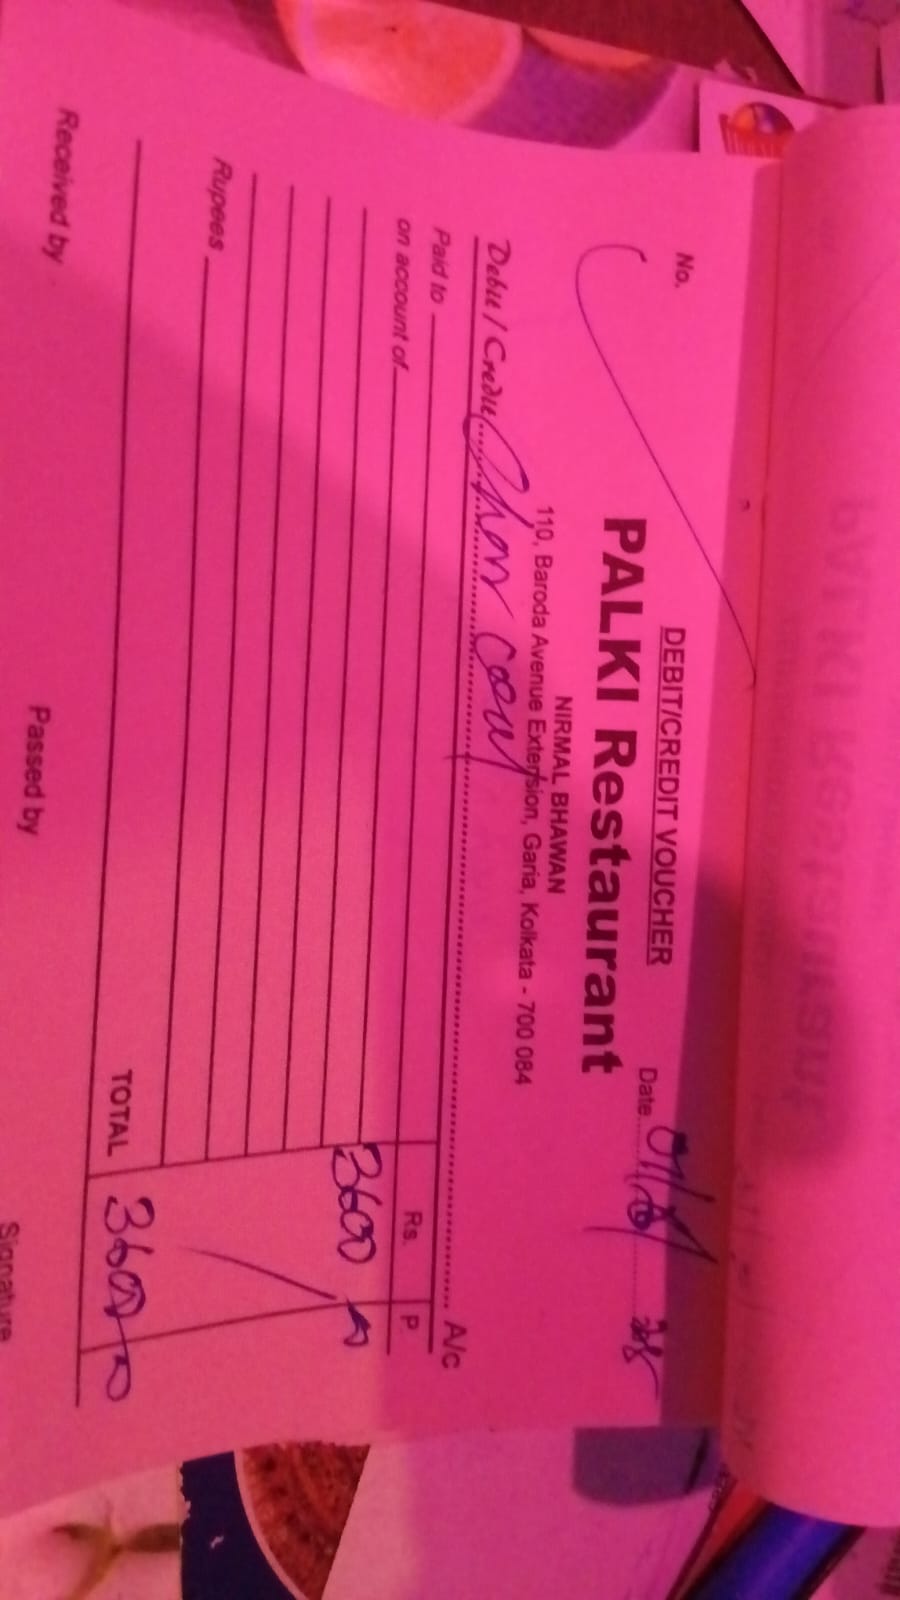 DEBIT/CREDIT VOUCHER
No.
Date
PALKI Restaurant
NIRMAL BHAWAN
110, Baroda Avenue Extension, Garia, Kolkata - 700 084
Debit / Credit A/c
Paid to
on account of Rs. P.
3600
Rupees
TOTAL 3600
Received by Passed by Signature